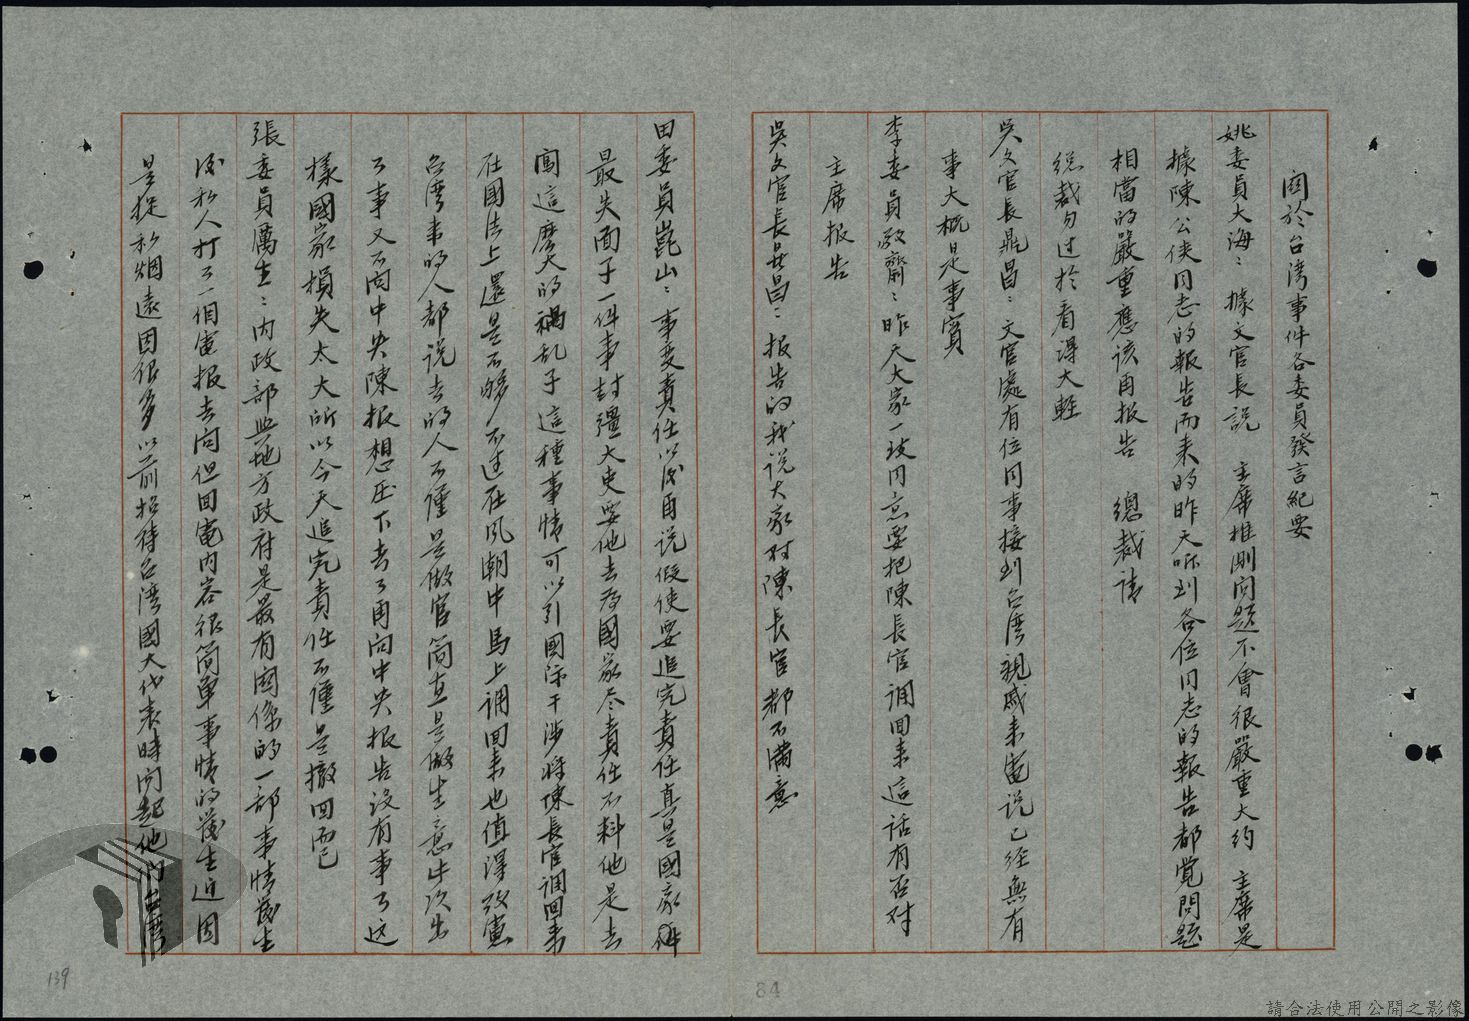 關於台湾事件各委員發言紀要
姚委員大海：據文官長說　主席推測问題不會很嚴重大约　主席是
據陳公俠同志的報告而来的昨天听到各位同志的報告都覺問題
相當的嚴重應该再报告　總裁请
総裁勿过於看得太輕
吳文官長鼎昌：文官處有位同事接到台湾親戚来電说已经無有
事大概是事實
李委員敬齋：昨天大家一致同意要把陳長官调回来這话有否对
主席报告
吳文官長鼎昌：报告的我说大家对陳長官都不满意
田委員崑山：事变責任以後再说假使要追究責任真是國家
最失面子一件事封疆大吏要他去為國家尽責任不料他是去
闖這麼大的禍乱子這種事情可以引國际干涉将陳長官调回来
在國法上還是不够不过在风潮中馬上调回来也值得攷慮
台湾来的人都说去的人不僅是做官简直是做生意此次出
了事又不向中央陳报想压下去了再向中央报告没有事了这
樣國家損失太大所以今天追究責任不僅是撤回而已
張委員厲生：内政部與地方政府是最有関係的一部事情發生
後私人打了一個電报去问但回電内容很简单事情的發生近因
是捉私烟遠因很多以前招待台湾國大代表時问起他们台湾
139
84
請合法使用公開之影像